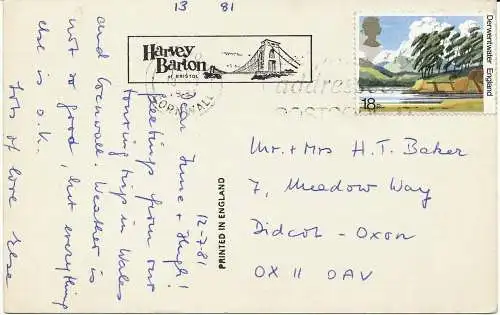 13 81
Harvey
Barton
of BRISTOL
CORNWALL
address
POSTCODE
Derwentwater England
18
12-7-81
Dear June + Hugh!
Greetings from our
touring trip in Wales
and Cornwall. Weather is
not so good, but everything
else is o.k.
Lots of love Else
PRINTED IN ENGLAND
Mr. + Mrs H. T. Baker
7, Meadow Way
Didcot - Oxon
OX 11 0AV